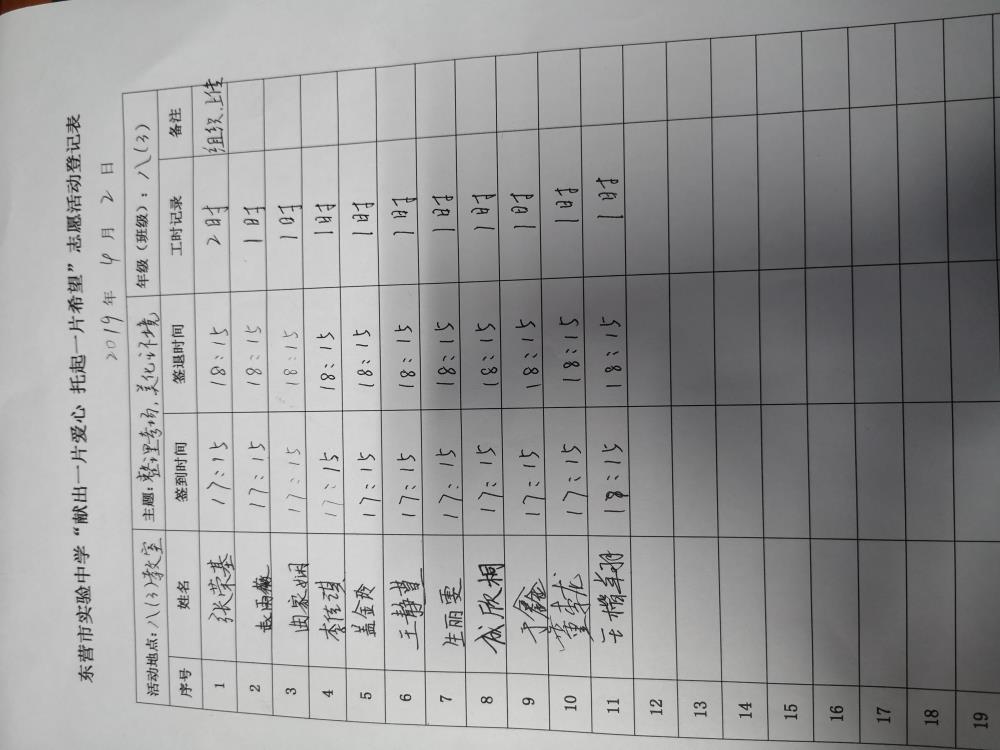 东营市实验中学“献出一片爱心 托起一片希望”志愿活动登记表
2019年 4月 2日
活动地点：八(3)教室 主题：整理考场，美化环境 年级（班级）：八(3)
序号 姓名 签到时间 签退时间 工时记录 备注
1 张荣基 17:15 18:15 2时 组织、上传
2 赵雨薇 17:15 18:15 1时
3 曲家娴 17:15 18:15 1时
4 李佳琪 17:15 18:15 1时
5 盖金玲 17:15 18:15 1时
6 王静萱 17:15 18:15 1时
7 生丽雯 17:15 18:15 1时
8 成欣桐 17:15 18:15 1时
9 于鑫 17:15 18:15 1时
10 17:15 18:15 1时
11 18:15 18:15 1时
12
13
14
15
16
17
18
19